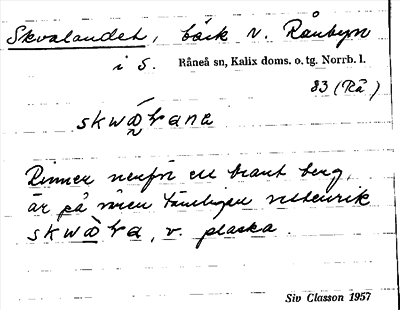 Skvalandet, bäck N. Rånbyn
i S. Råneå sn, Kalix doms. o. tg. Norrb. l.
83 (Rå)
skwalana
Rinner nerför ett brant berg,
är på våren tämligen vattenrik
skwala, v. plaska.
Siv Classon 1957